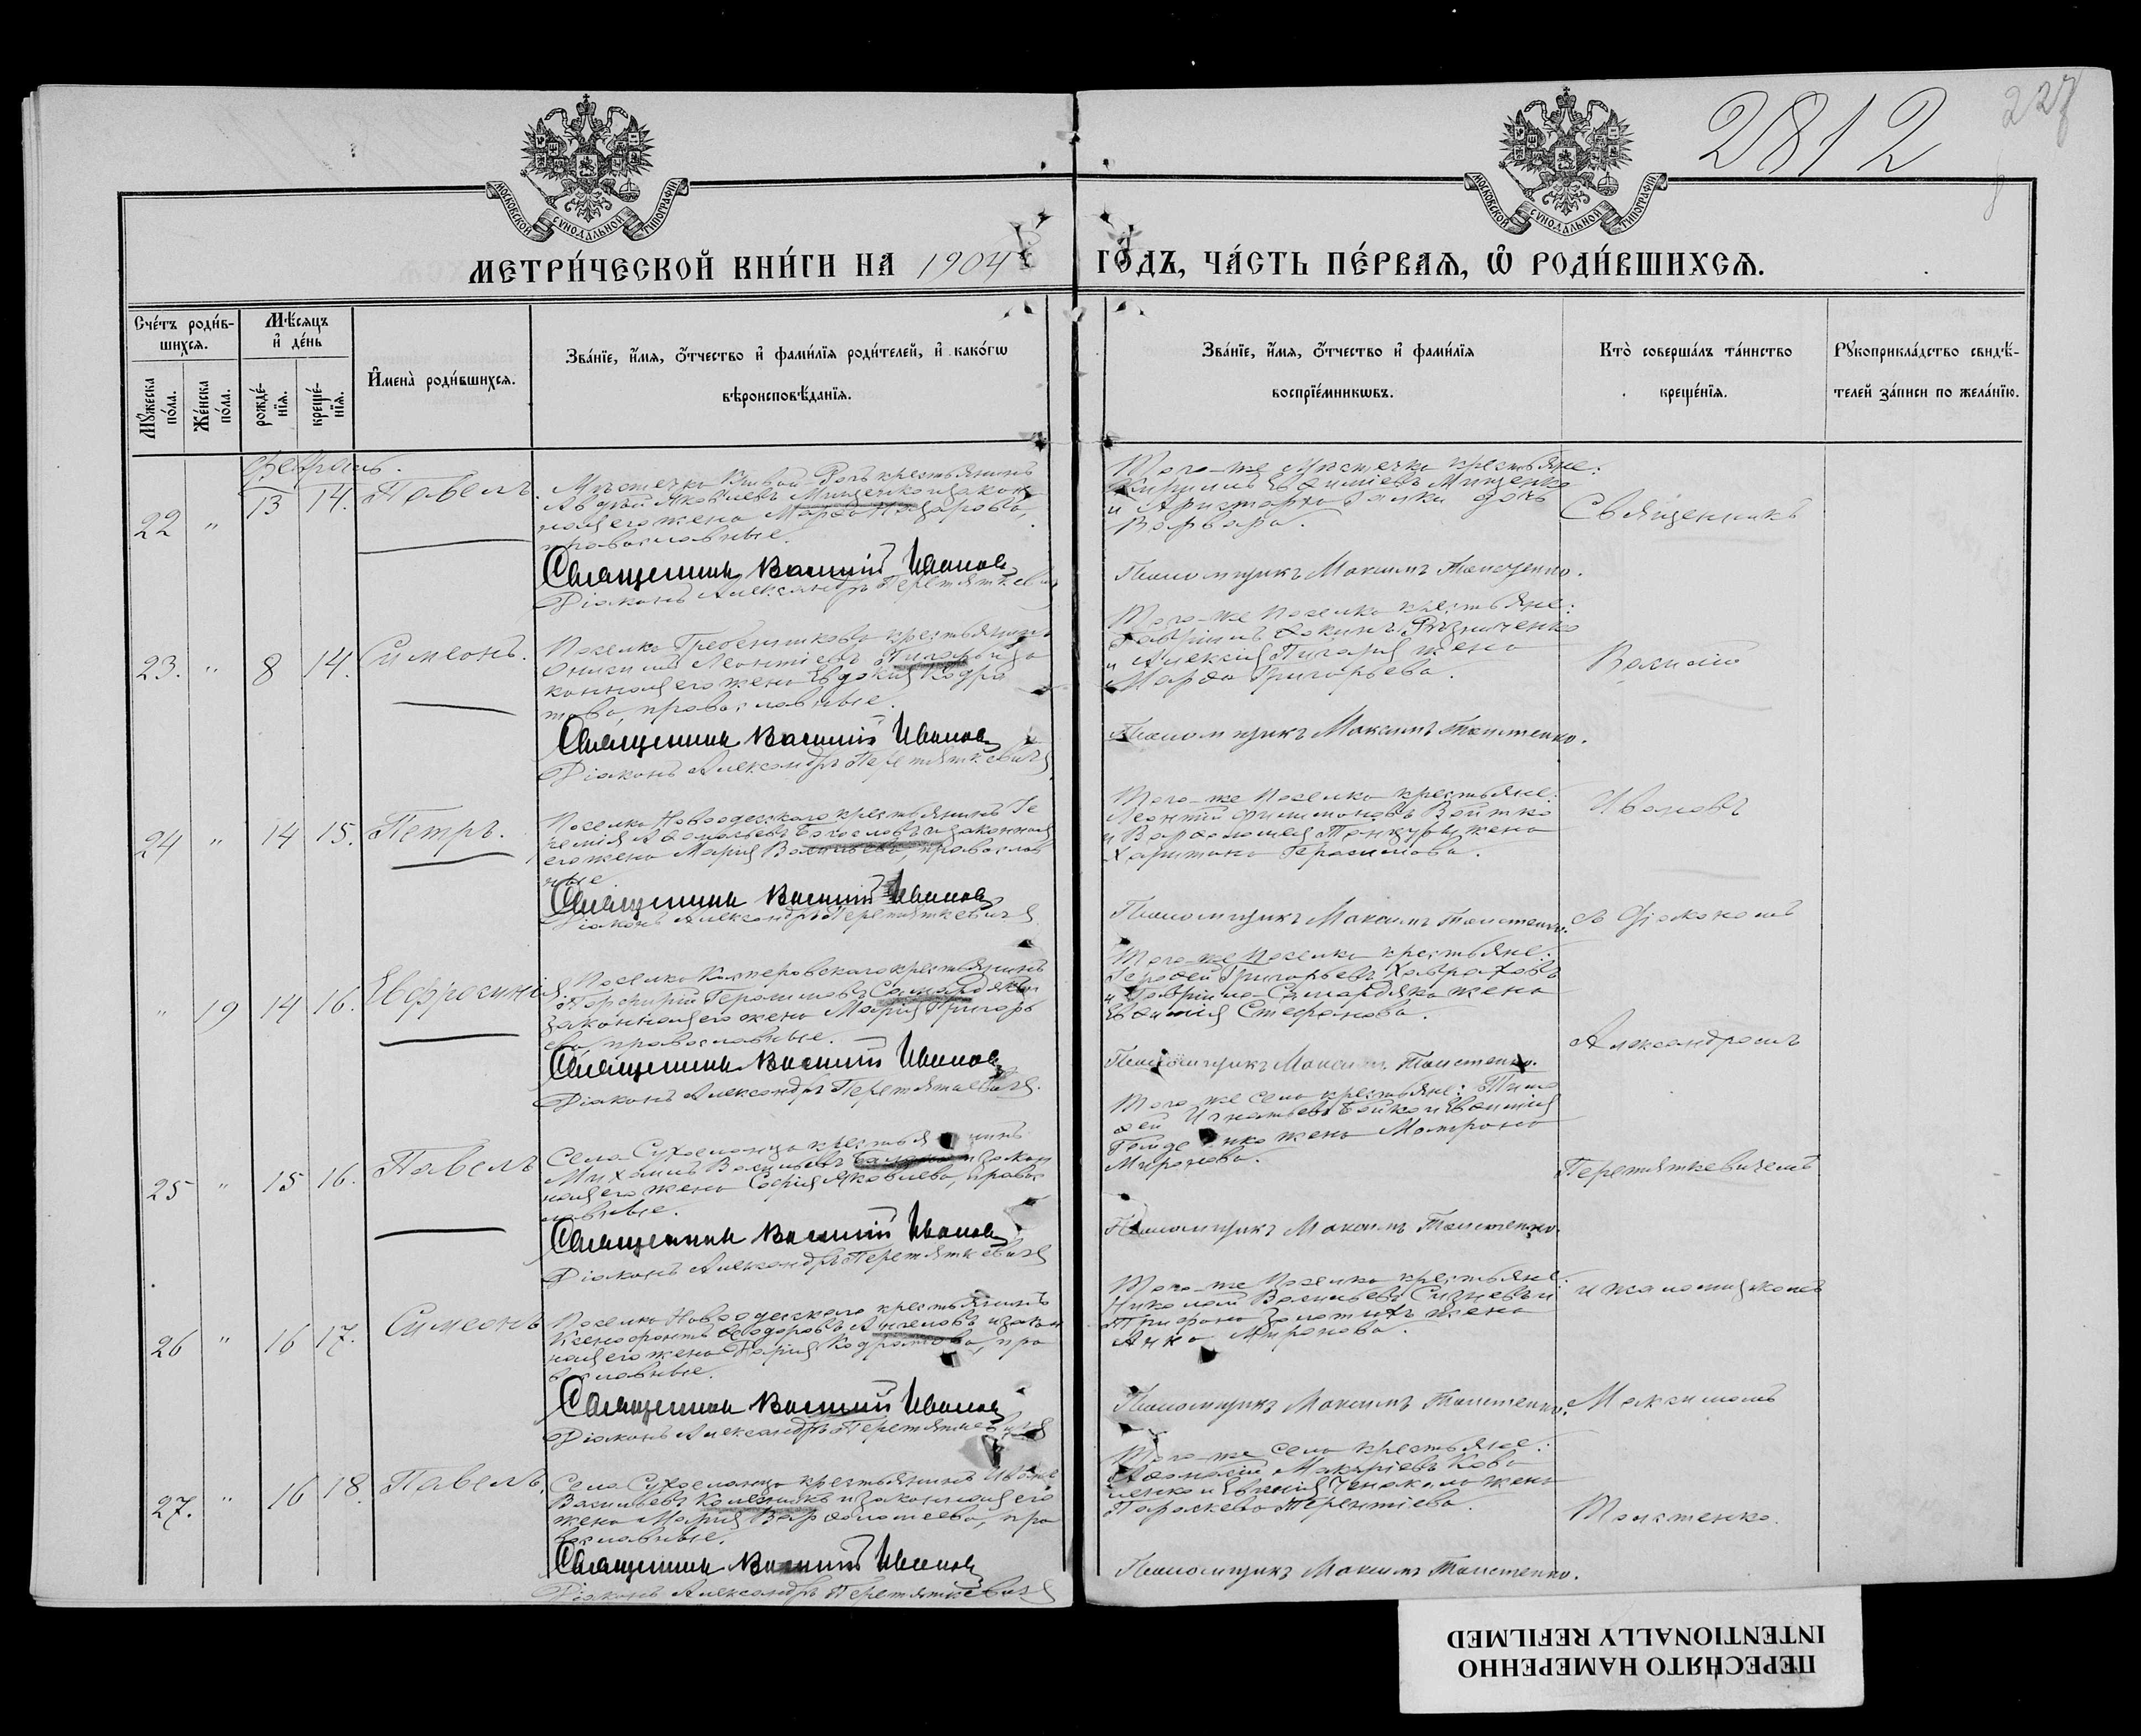 2812
227
МОСКОВСКОЙ СѴНОДАЛЬНОЙ ТИПОГРАФІИ
МОСКОВСКОЙ СѴНОДАЛЬНОЙ ТИПОГРАФІИ
МЕТРИ́ЧЕСКОЙ КНИ́ГИ НА 1904 ГО́ДЪ, ЧА́СТЬ ПЕ́РВАѦ, Ѡ҆ РОДИ́ВШИХСѦ.
Сче́тъ роди́в-
шихсѧ.
Мꙋ́жеска
по́ла.
Же́нска
по́ла.
Мѣ́сѧцъ
и҆ де́нь
рожде́-
нїѧ.
креще́-
нїѧ.
И҆мена̀ роди́вшихсѧ.
Зва́нїе, и҆́мѧ, ѻ҆́тчество и҆ фами́лїѧ роди́телей, и҆ како́гѡ
вѣроисповѣ́данїѧ.
Зва́нїе, и҆́мѧ, ѻ҆́тчество и҆ фами́лїѧ
воспрїе́мникѡвъ.
Кто̀ соверша́лъ та́инство
креще́нїѧ.
Рꙋкоприкла́дство свидѣ́-
телей за́писи по жела́нїю.
Февраль.
22 " 13 14. Павелъ.
Мѣстечка Кривой-Рогъ крестьянинъ
Авдій Яковлевъ Мищенко и закон
ная его жена Марѳа Назарова,
православные.
Священникъ Василій Ивановъ
Діаконъ Александръ Перетяткевичъ
Того-же мѣстечка крестьяне:
Кириллъ Евѳиміевъ Мищенко
и Аристарха Галки дочь
Варвара.
Псаломщикъ Максимъ Толстенко.
Священникъ
23. " 8 14. Симеонъ.
Поселка Гребенникова крестьянинъ
Онисимъ Леонтіевъ и за
конная его жена Евдокія Кодра
това, православные.
Священникъ Василій Ивановъ
Діаконъ Александръ Перетяткевичъ
Того-же поселка крестьяне:
Гавріилъ Резниченко
и Алексія жена
Марѳа Григорьева.
Псаломщикъ Максимъ Толстенко.
Василій
24 " 14 15. Петръ.
Поселка Новоодесскаго крестьянинъ
и законная
его жена Марія Васильева, православ
ные.
Священникъ Василій Ивановъ
Діаконъ Александръ Перетяткевичъ
Того-же поселка крестьяне:
Леонтій Филимоновъ Войтко
и Варѳоломея жена
Харитина Герасимова.
Псаломщикъ Максимъ Толстенко.
Ивановъ
съ Діакономъ
" 19 14 16. Евфросинія
Поселка крестьянинъ
Порфирій Герасимовъ Самардакъ и
законная его жена Марія Григорь
ева, православные.
Священникъ Василій Ивановъ
Діаконъ Александръ Перетяткевичъ.
Того-же поселка крестьяне:
Григорьевъ
и Гавріила Самардака жена
Евѳимія Стефанова.
Псаломщикъ Максимъ Толстенко.
Александромъ
25 " 15 16. Павелъ
Села Сухоеланца крестьянинъ
Михаилъ Васильевъ и закон
ная его жена Софія Яковлева, правос
лавные.
Священникъ Василій Ивановъ
Діаконъ Александръ Перетяткевичъ
Того-же села крестьяне: Тимо
ѳей Игнатьевъ Бойко и Евѳимія
жена Матрона
Миронова.
Псаломщикъ Максимъ Толстенко.
Перетяткевичемъ
26 " 16 17. Симеонъ
Поселка Новоодесскаго крестьянинъ
Ксенофонтъ Ѳеодоровъ Ангеловъ и закон
ная его жена Дарія Кодратова, пра
вославные.
Священникъ Василій Ивановъ
Діаконъ Александръ Перетяткевичъ
Того-же поселка крестьяне:
Николай Васильевъ и
Трифона жена
Анна Миронова.
Псаломщикъ Максимъ Толстенко.
и псаломщикомъ
Максимомъ
27. " 16 18. Павелъ.
Села Сухоеланца крестьянинъ Иванъ
Васильевъ Колесникъ и законная его
жена Марія Варѳоломеева, пра
вославные.
Священникъ Василій Ивановъ
Діаконъ Александръ Перетяткевичъ
Того-же села крестьяне:
Аѳанасій Макаріевъ Кова
ленко и Евгенія жена
Параскева Терентіева.
Псаломщикъ Максимъ Толстенко.
Толстенко.
ПЕРЕСНЯТО НАМЕРЕННО
INTENTIONALLY REFILMED